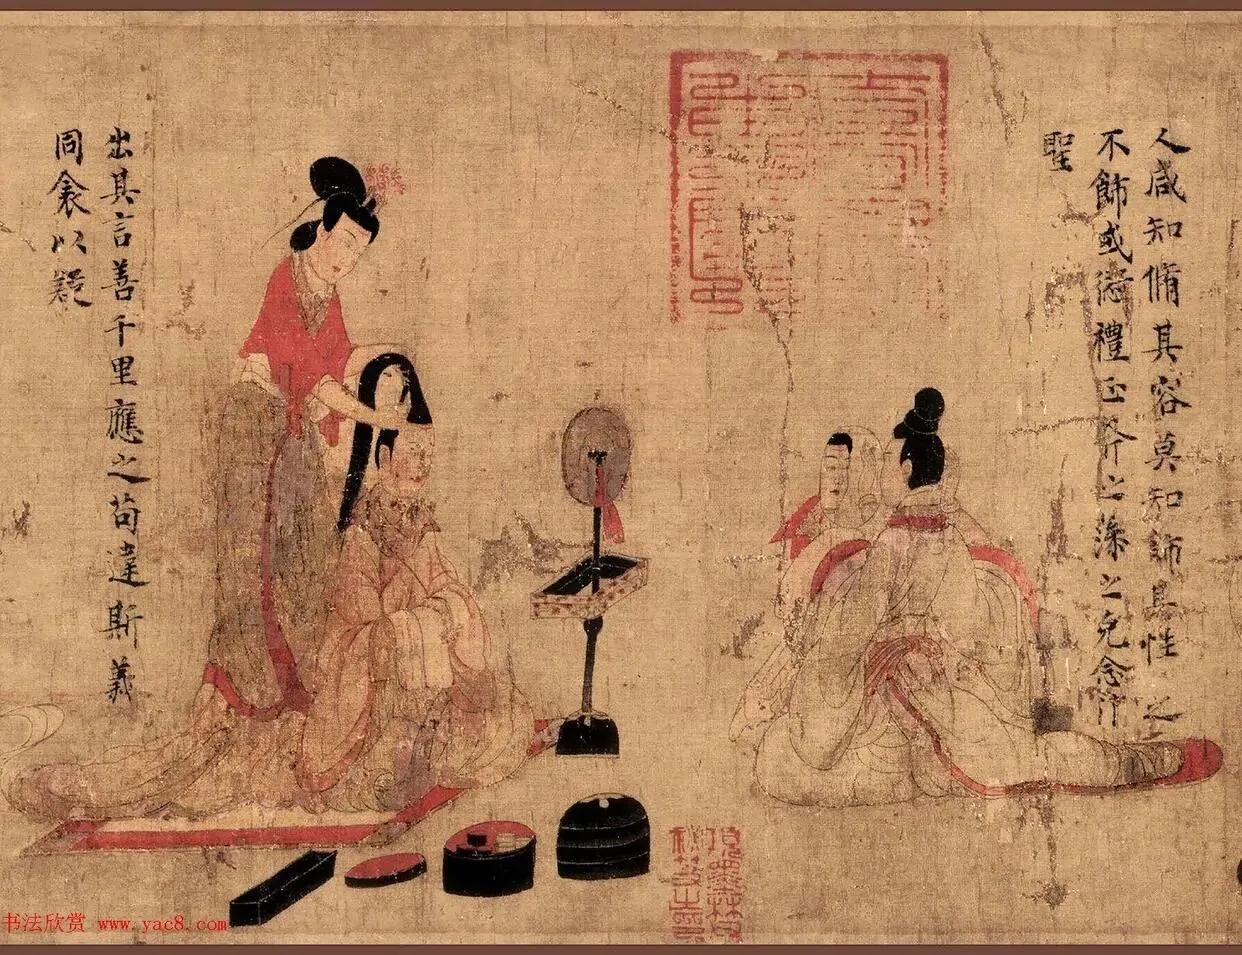 人咸知脩其容莫知飾其性之
不飾或愆禮正斧之藻之克念作
聖
出其言善千里應之苟違斯義
同衾以疑
书法欣赏 www.yac8.com